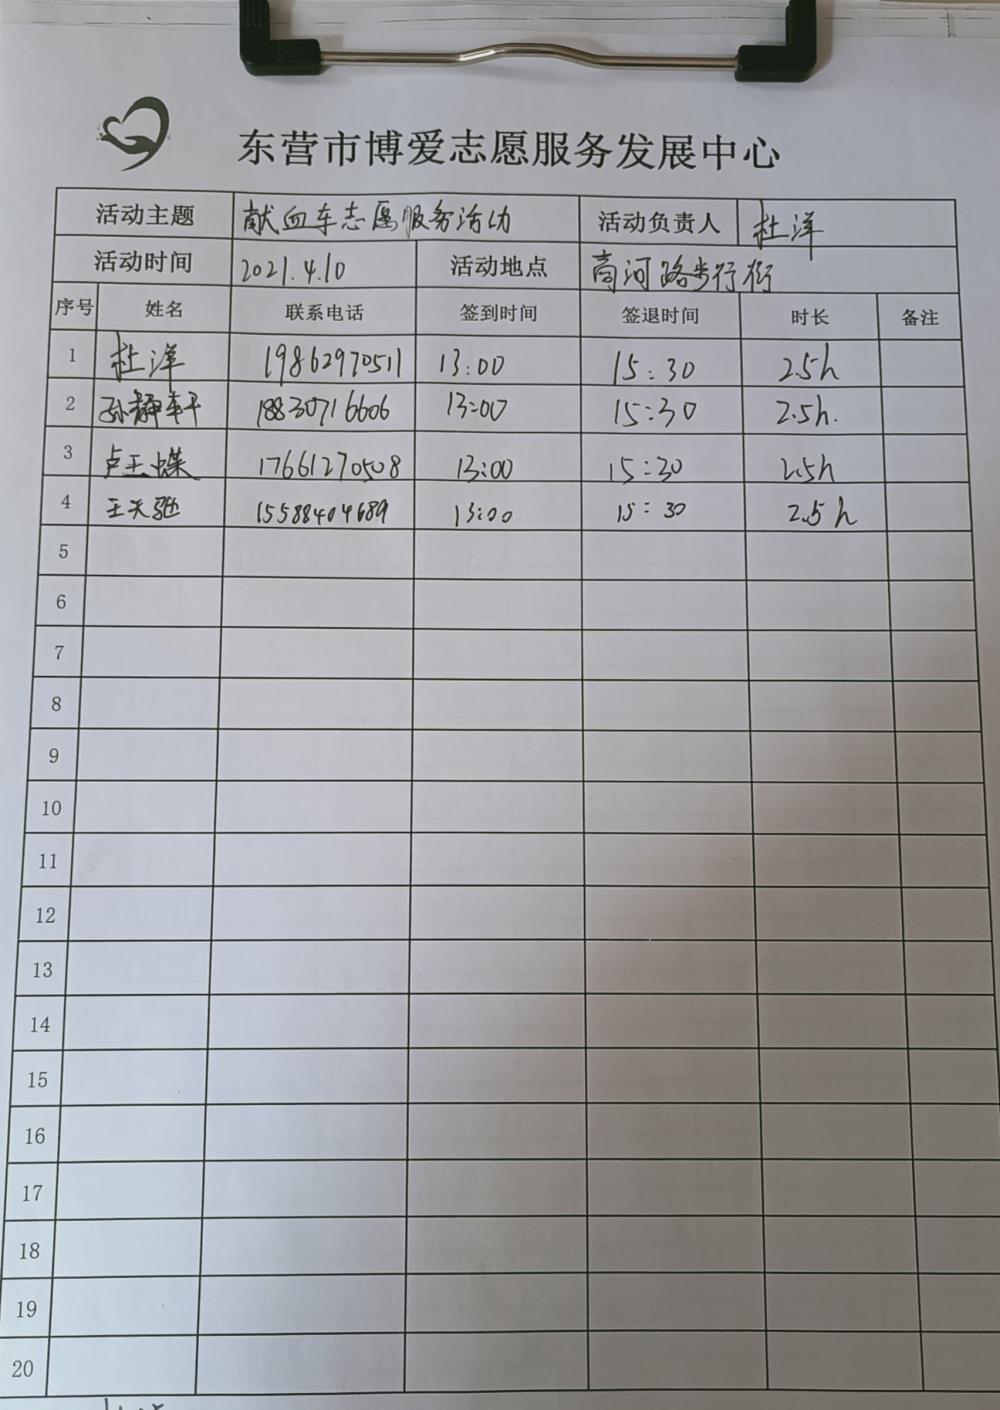 东营市博爱志愿服务发展中心
活动主题 献血车志愿服务活动 活动负责人 杜洋
活动时间 2021.4.10 活动地点 商河路步行街
序号 姓名 联系电话 签到时间 签退时间 时长 备注
1 杜洋 19862970511 13:00 15:30 2.5h
2 孙静轩 18830716606 13:00 15:30 2.5h.
3 卢玉蝶 17661270508 13:00 15:30 2.5h
4 王天驰 15588404689 13:00 15:30 2.5h
5
6
7
8
9
10
11
12
13
14
15
16
17
18
19
20